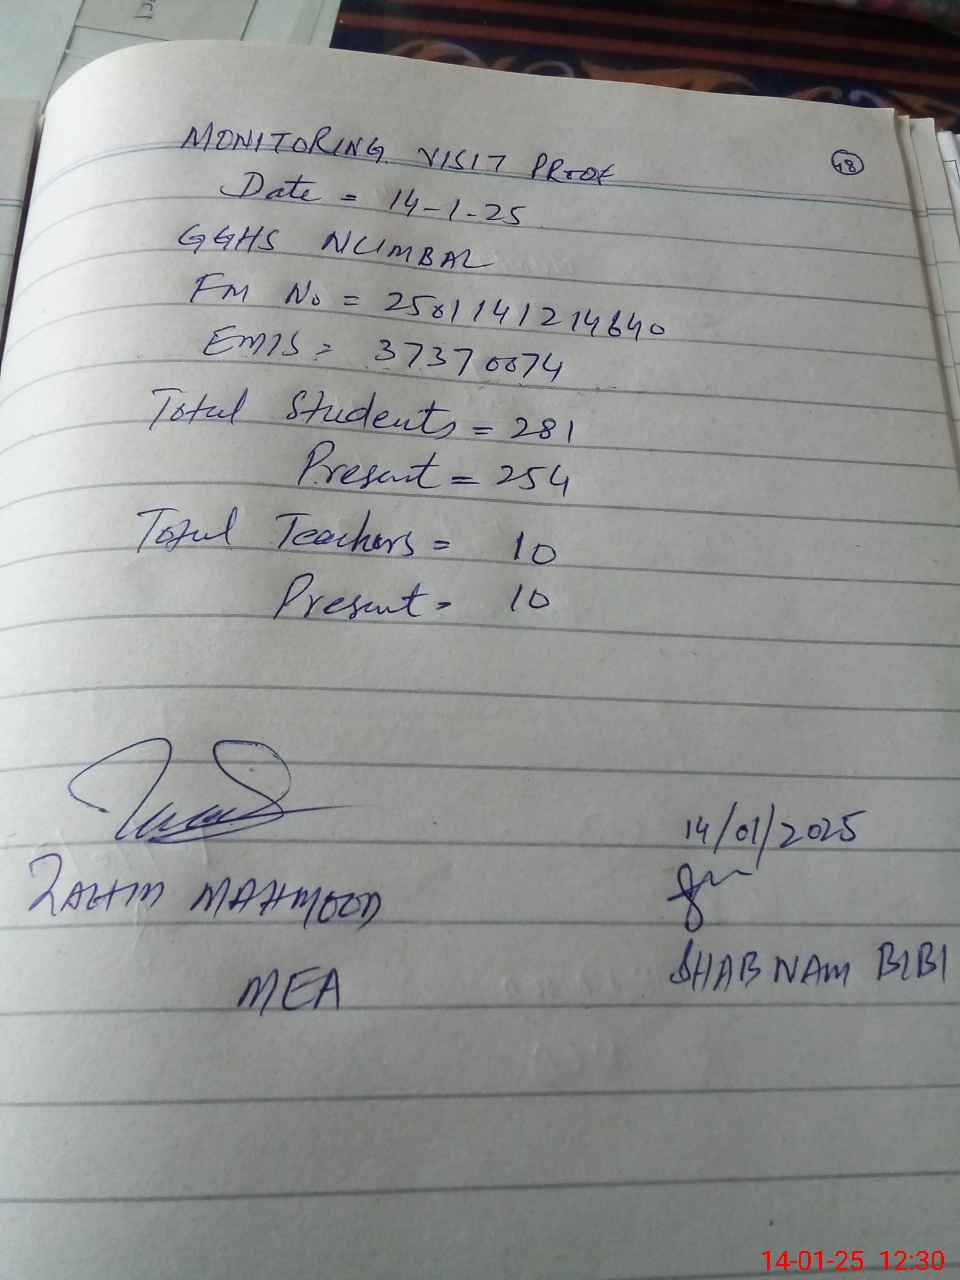 MONITORING VISIT PROOF
48
Date = 14-1-25
GGHS NUMBAL
FM No = 2501141214640
EMIS = 37370074
Total Students = 281
Present = 254
Total Teachers = 10
Present = 10
14/01/2025
MAHMOOD
SHABNAM BIBI
MEA
14-01-25 12:30